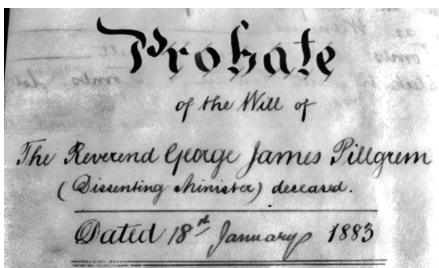 Probate
of the Will of
The Reverend George James Pillgrem
(Dissenting Minister) deceased.
Dated 18st January 1883